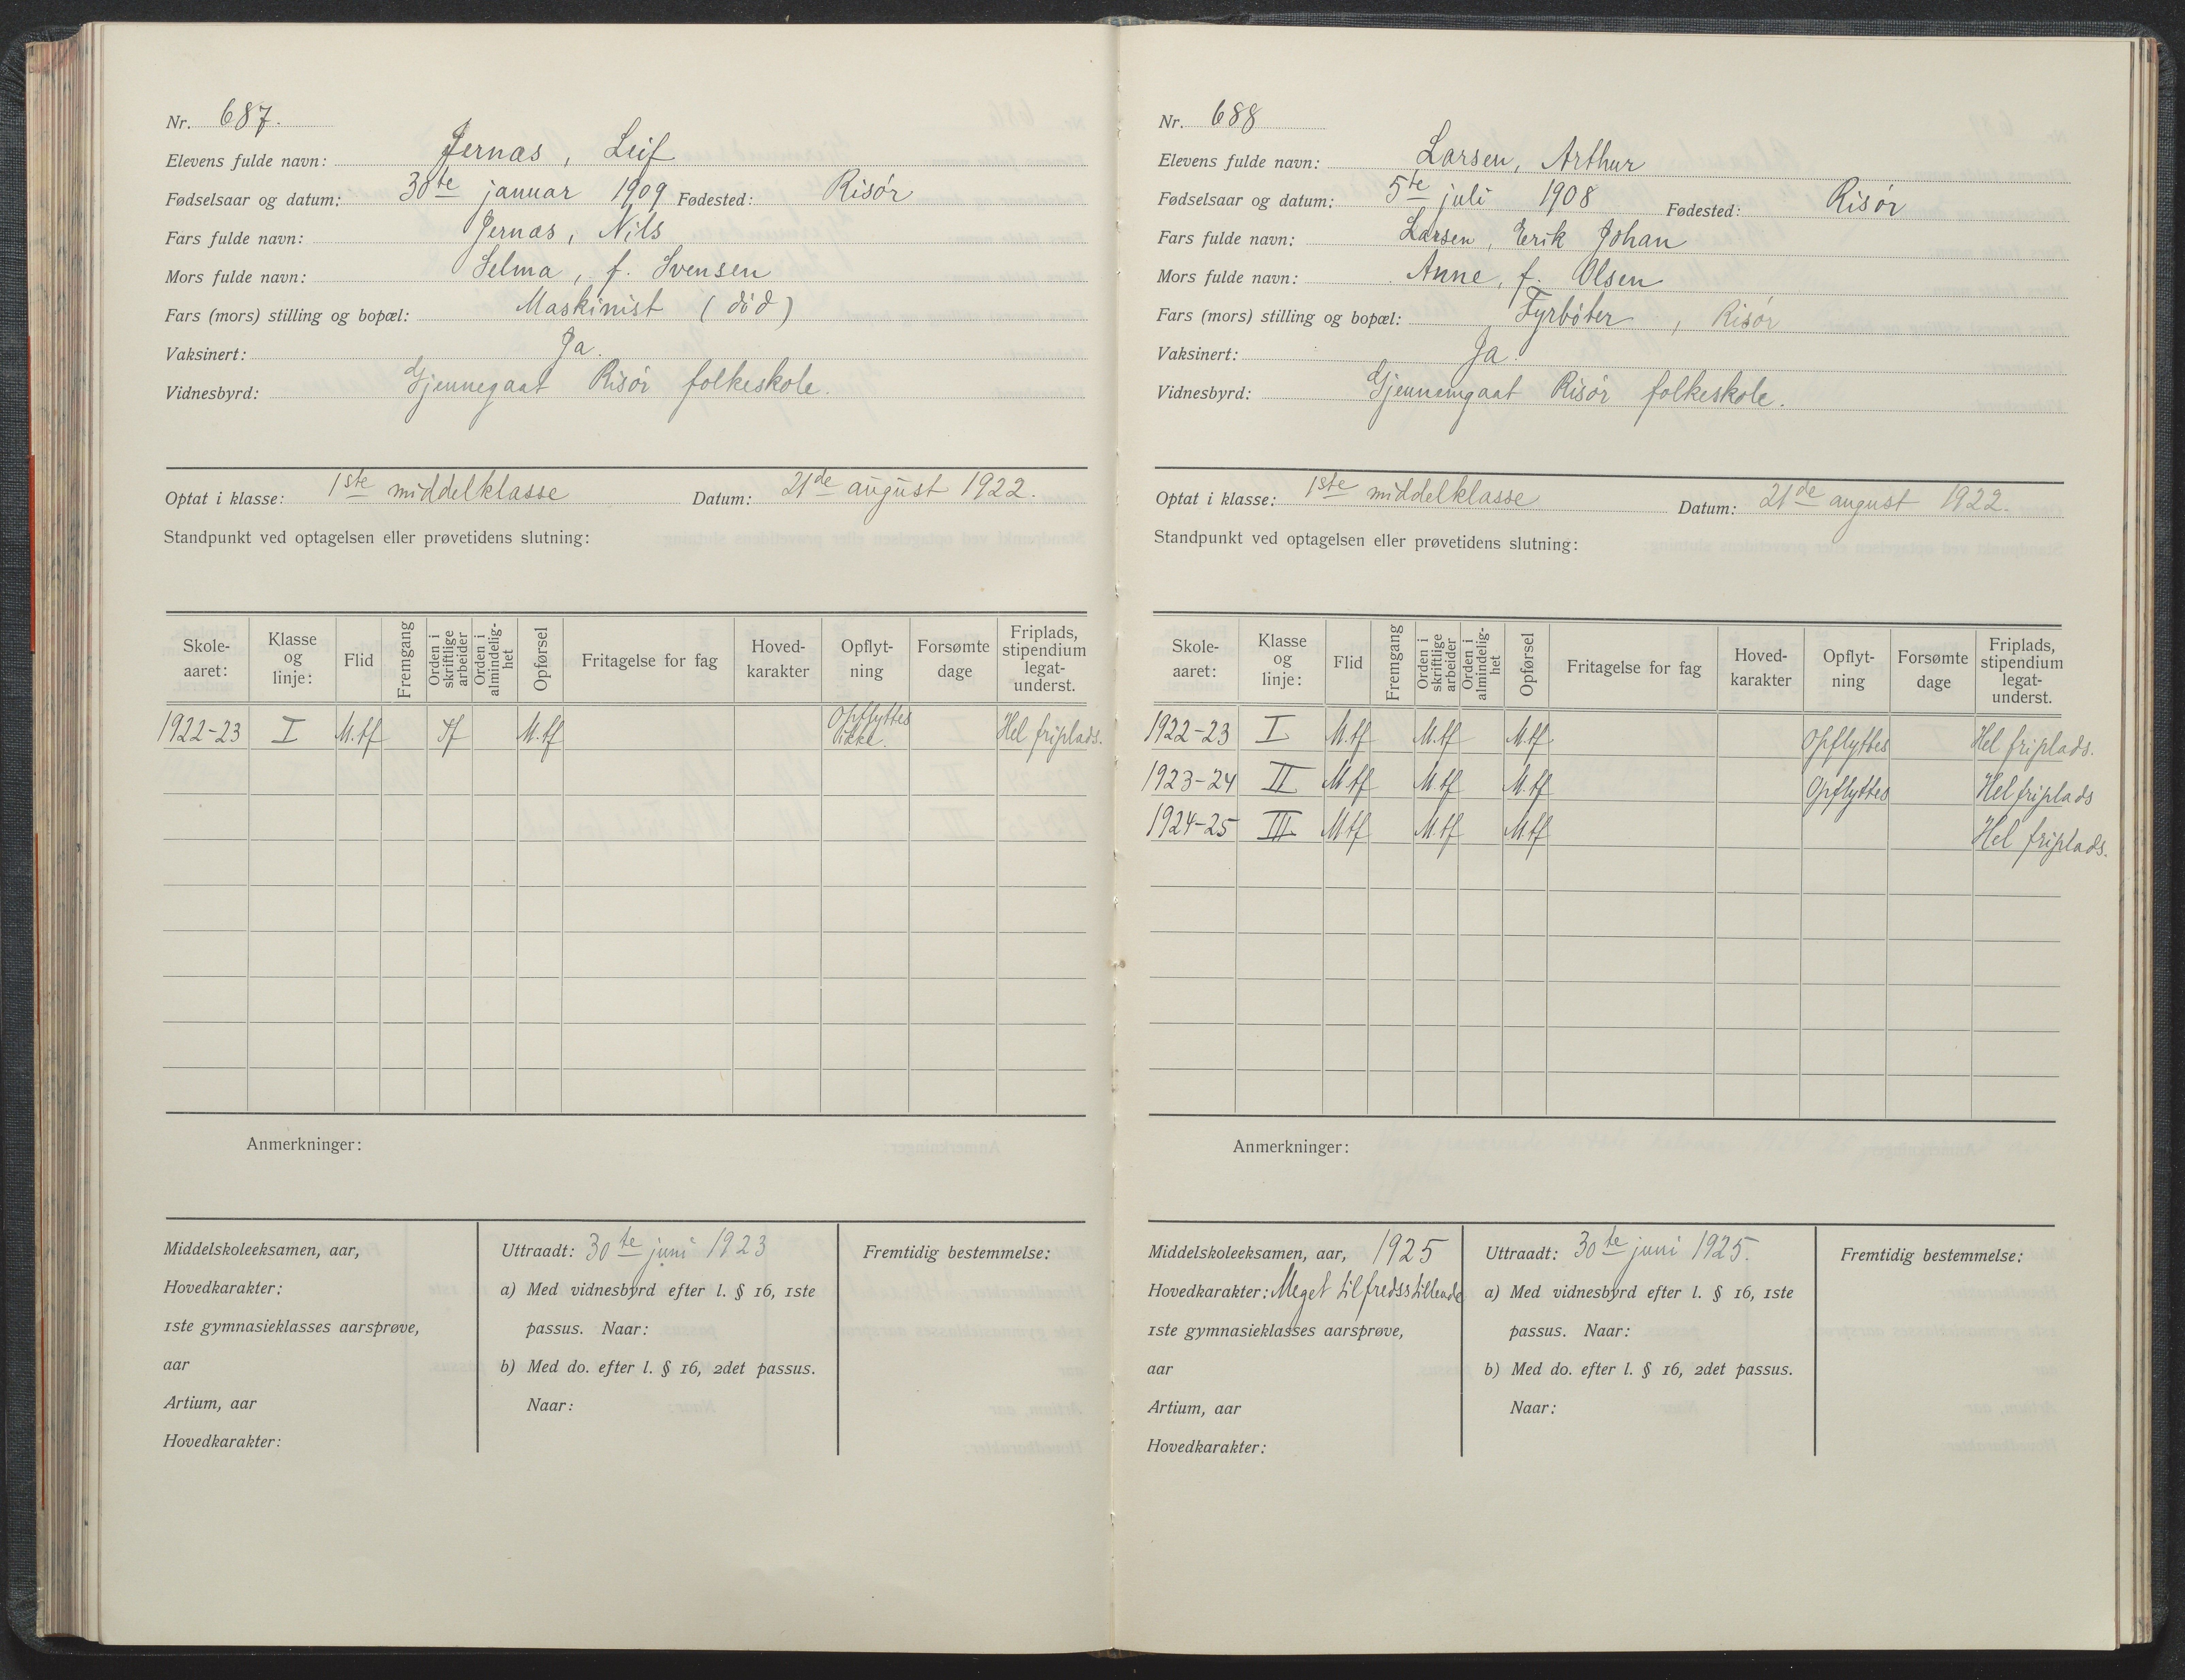 Nr. 687.
Elevens fulde navn: Jernæs, Leif
Fødselsaar og datum: 30te januar 1909 Fødested: Risör
Fars fulde navn: Jernæs, Nils
Mors fulde navn: Selma, f. Svensen
Fars (mors) stilling og bopæl: Maskinist (död)
Vaksinert: Ja.
Vidnesbyrd: Gjennegaat Risör folkeskole.
Optat i klasse: 1ste middelklasse Datum: 21de august 1922.
Standpunkt ved optagelsen eller prøvetidens slutning:
Skole-aaret: Klasse og linje: Flid Fremgang Orden i skriftlige arbeider Orden i almindelig-het Opførsel Fritagelse for fag Hoved-karakter Opflyt-ning Forsømte dage Friplads, stipendium legat-underst.
1922-23 I M.tf Tf M.tf Opflyttes ikke. Hel friplads.
Anmerkninger:
Middelskoleeksamen, aar,
Hovedkarakter:
1ste gymnasieklasses aarsprøve,
aar
Artium, aar
Hovedkarakter:
Uttraadt: 30te juni 1923
a) Med vidnesbyrd efter l. § 16, 1ste
passus. Naar:
b) Med do. efter l. § 16, 2det passus.
Naar:
Fremtidig bestemmelse:
Nr. 688
Elevens fulde navn: Larsen, Arthur
Fødselsaar og datum: 5te juli 1908 Fødested: Risör
Fars fulde navn: Larsen, Erik Johan
Mors fulde navn: Anne, f. Olsen
Fars (mors) stilling og bopæl: Fyrböter, Risör
Vaksinert: Ja.
Vidnesbyrd: Gjennemgaat Risör folkeskole.
Optat i klasse: 1ste middelklasse Datum: 21de august 1922.
Standpunkt ved optagelsen eller prøvetidens slutning:
Skole-aaret: Klasse og linje: Flid Fremgang Orden i skriftlige arbeider Orden i almindelig-het Opførsel Fritagelse for fag Hoved-karakter Opflyt-ning Forsømte dage Friplads, stipendium legat-underst.
1922-23 I M.tf M.tf M.tf Opflyttes Hel friplads.
1923-24 II M.tf M.tf M.tf Opflyttes Hel friplads
1924-25 III M.tf M.tf M.tf Hel friplads.
Anmerkninger:
Middelskoleeksamen, aar, 1925
Hovedkarakter: Meget tilfredsstillende
1ste gymnasieklasses aarsprøve,
aar
Artium, aar
Hovedkarakter:
Uttraadt: 30te juni 1925.
a) Med vidnesbyrd efter l. § 16, 1ste
passus. Naar:
b) Med do. efter l. § 16, 2det passus.
Naar:
Fremtidig bestemmelse: